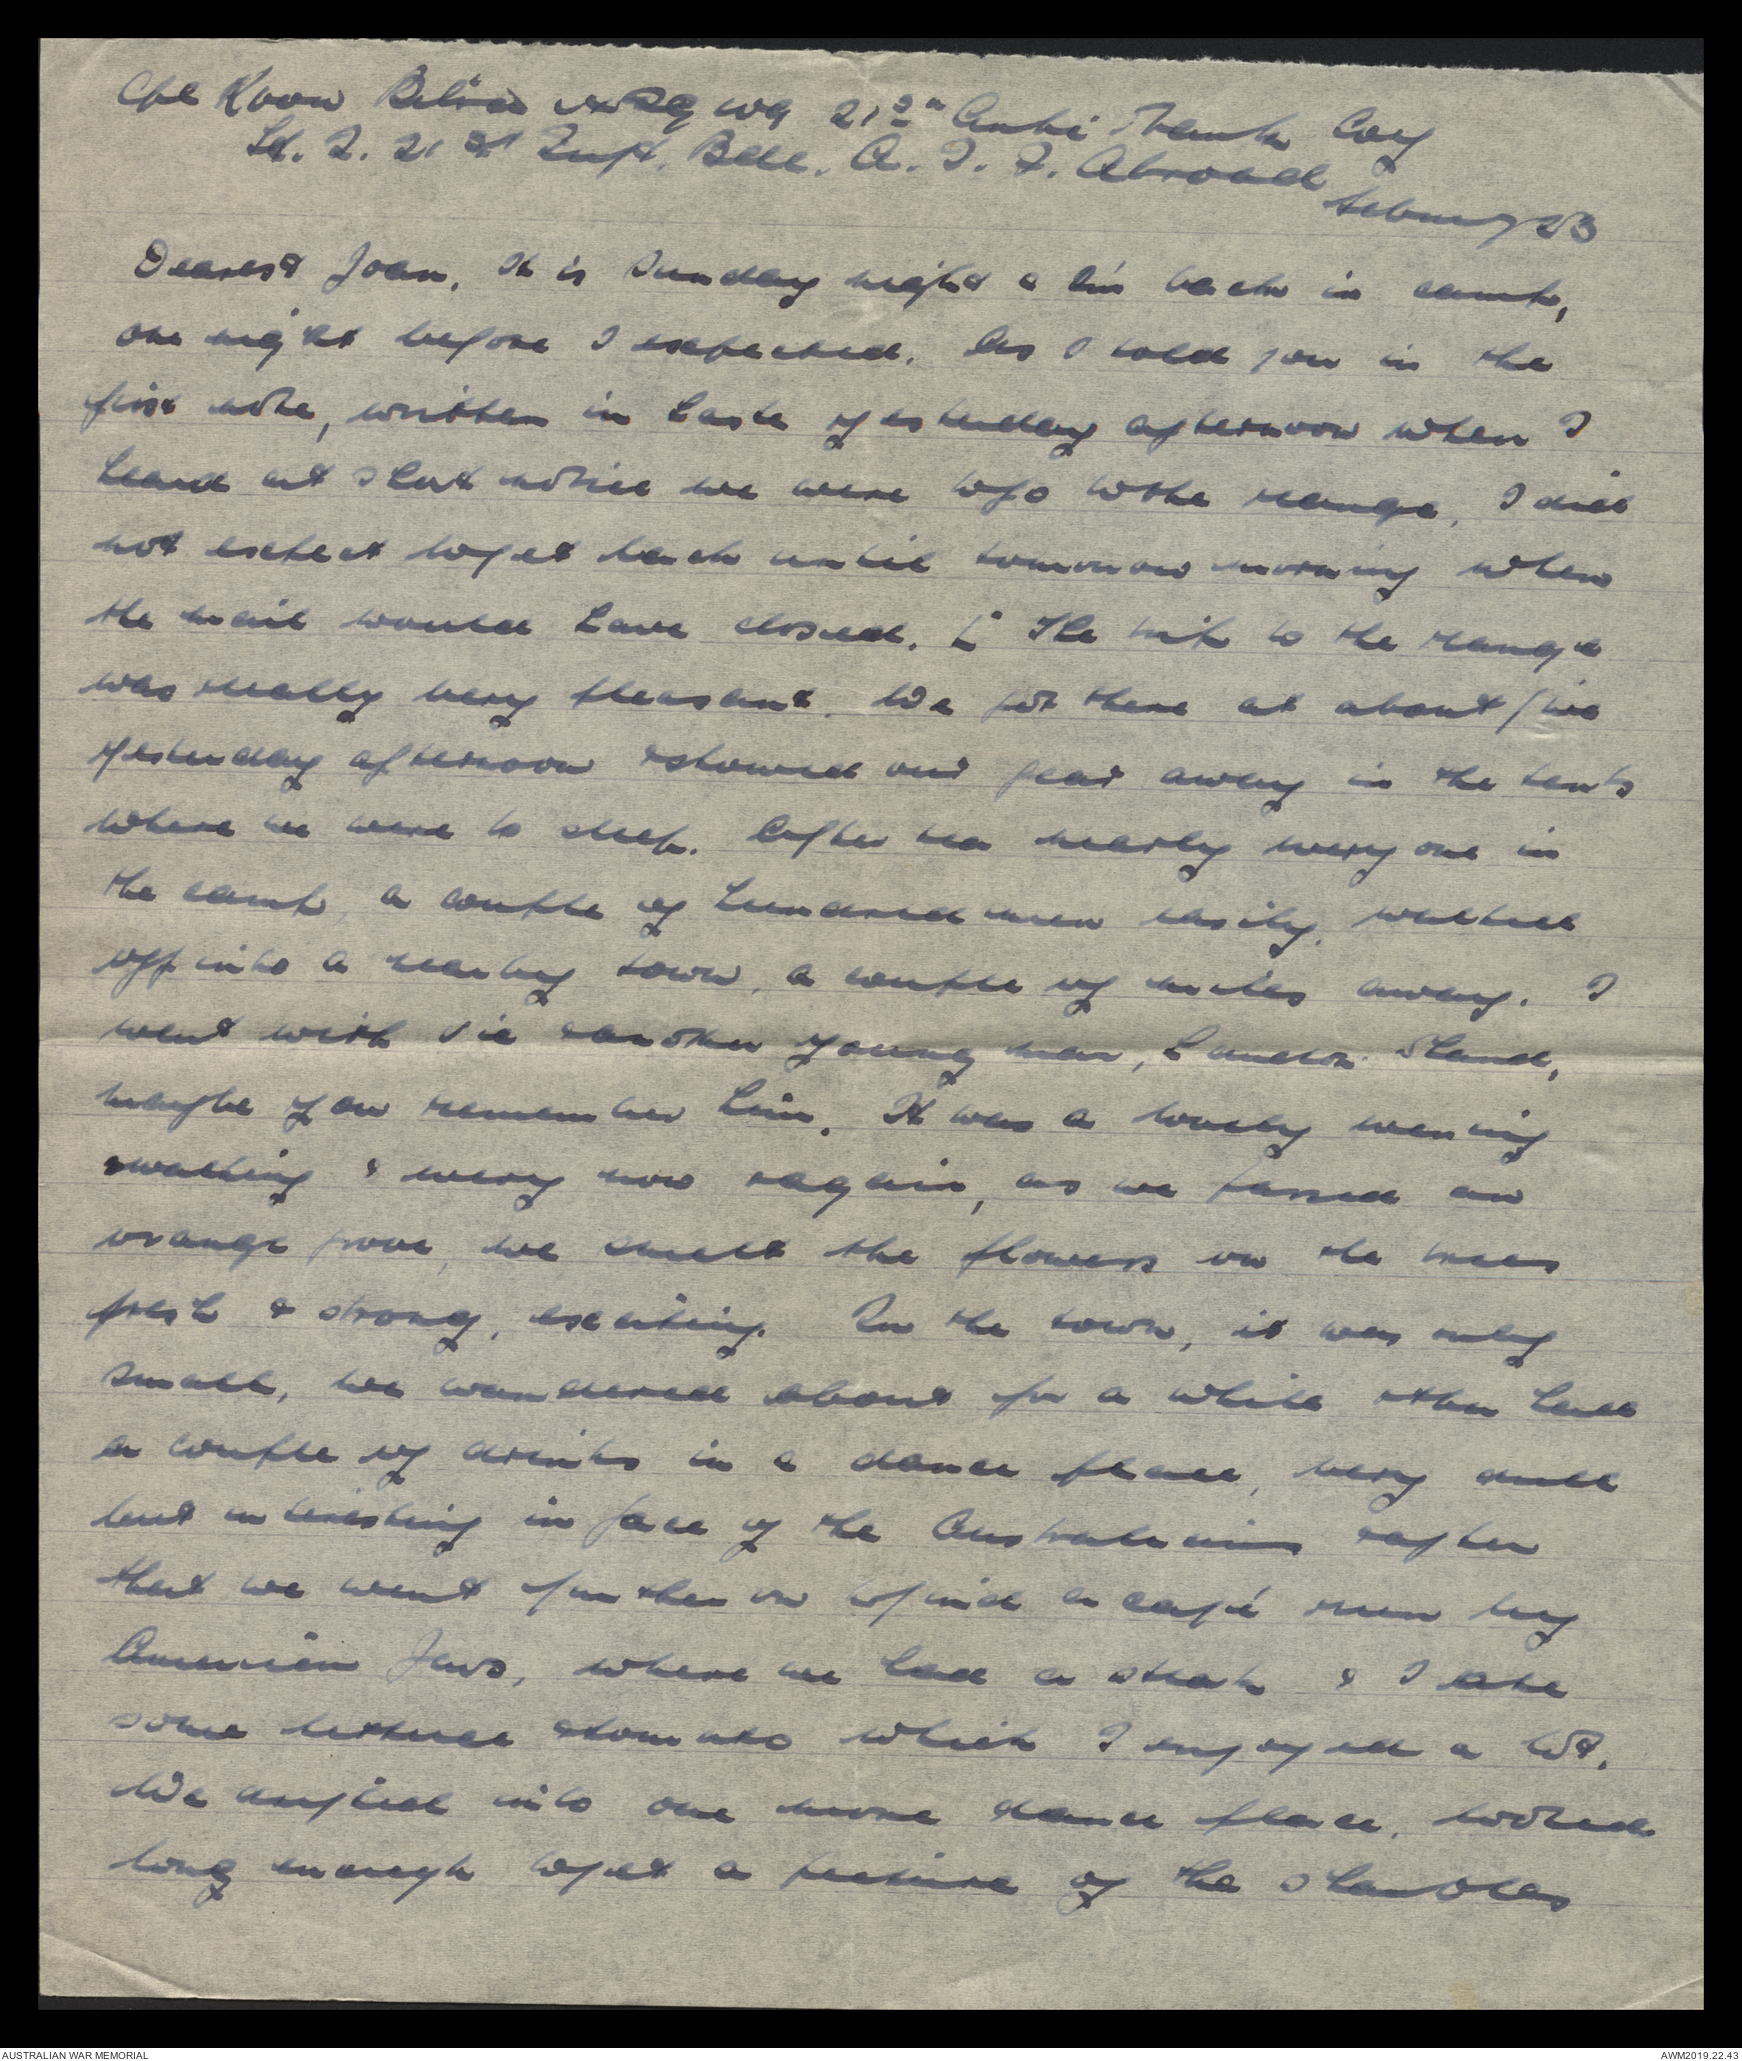 Cpl 21st Anti Tank Coy
21st Inf. Bde. A. I. F. Abroad
February 23
Dearest Joan, It is Sunday night & I'm back in camp,
one night before I expected. As I told you in the
first note, written in haste yesterday afternoon when I
heard at short notice we were to go to the range, I did
not expect to get back until tomorrow morning when
the mail would have closed. [ The trip to the range
was really very pleasant. We got there at about five
yesterday afternoon & stowed our gear away in the tents
where we were to sleep. After tea nearly every one in
the camp, a couple of hundred men easily, walked
off into a nearby town, a couple of miles away. I
went with Vic & another young man,
maybe you remember him. It was a lovely evening
walking & every now & again, as we passed an
orange grove, we smelt the flowers on the trees
fresh & strong, exciting. In the town, it was only
small, we wandered about for a while & then had
a couple of drinks in a dance place, very dull
but interesting in face of the Australians & after
that we went further on to find a café run by
American Jews, where we had a steak & I ate
some lettuce & tomato which I enjoyed a lot.
We into one more dance place, looked
long enough to get a picture of the
AUSTRALIAN WAR MEMORIAL
AWM2019.22.43